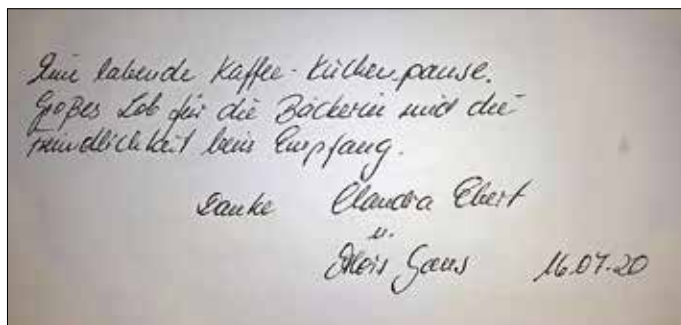 Eine labende Kaffee-Kuchenpause.
Großes Lob für die Bäckerin und die
Freundlichkeit beim Empfang.
Danke Claudia Ebert
u.
Alois Gans 16.07.20